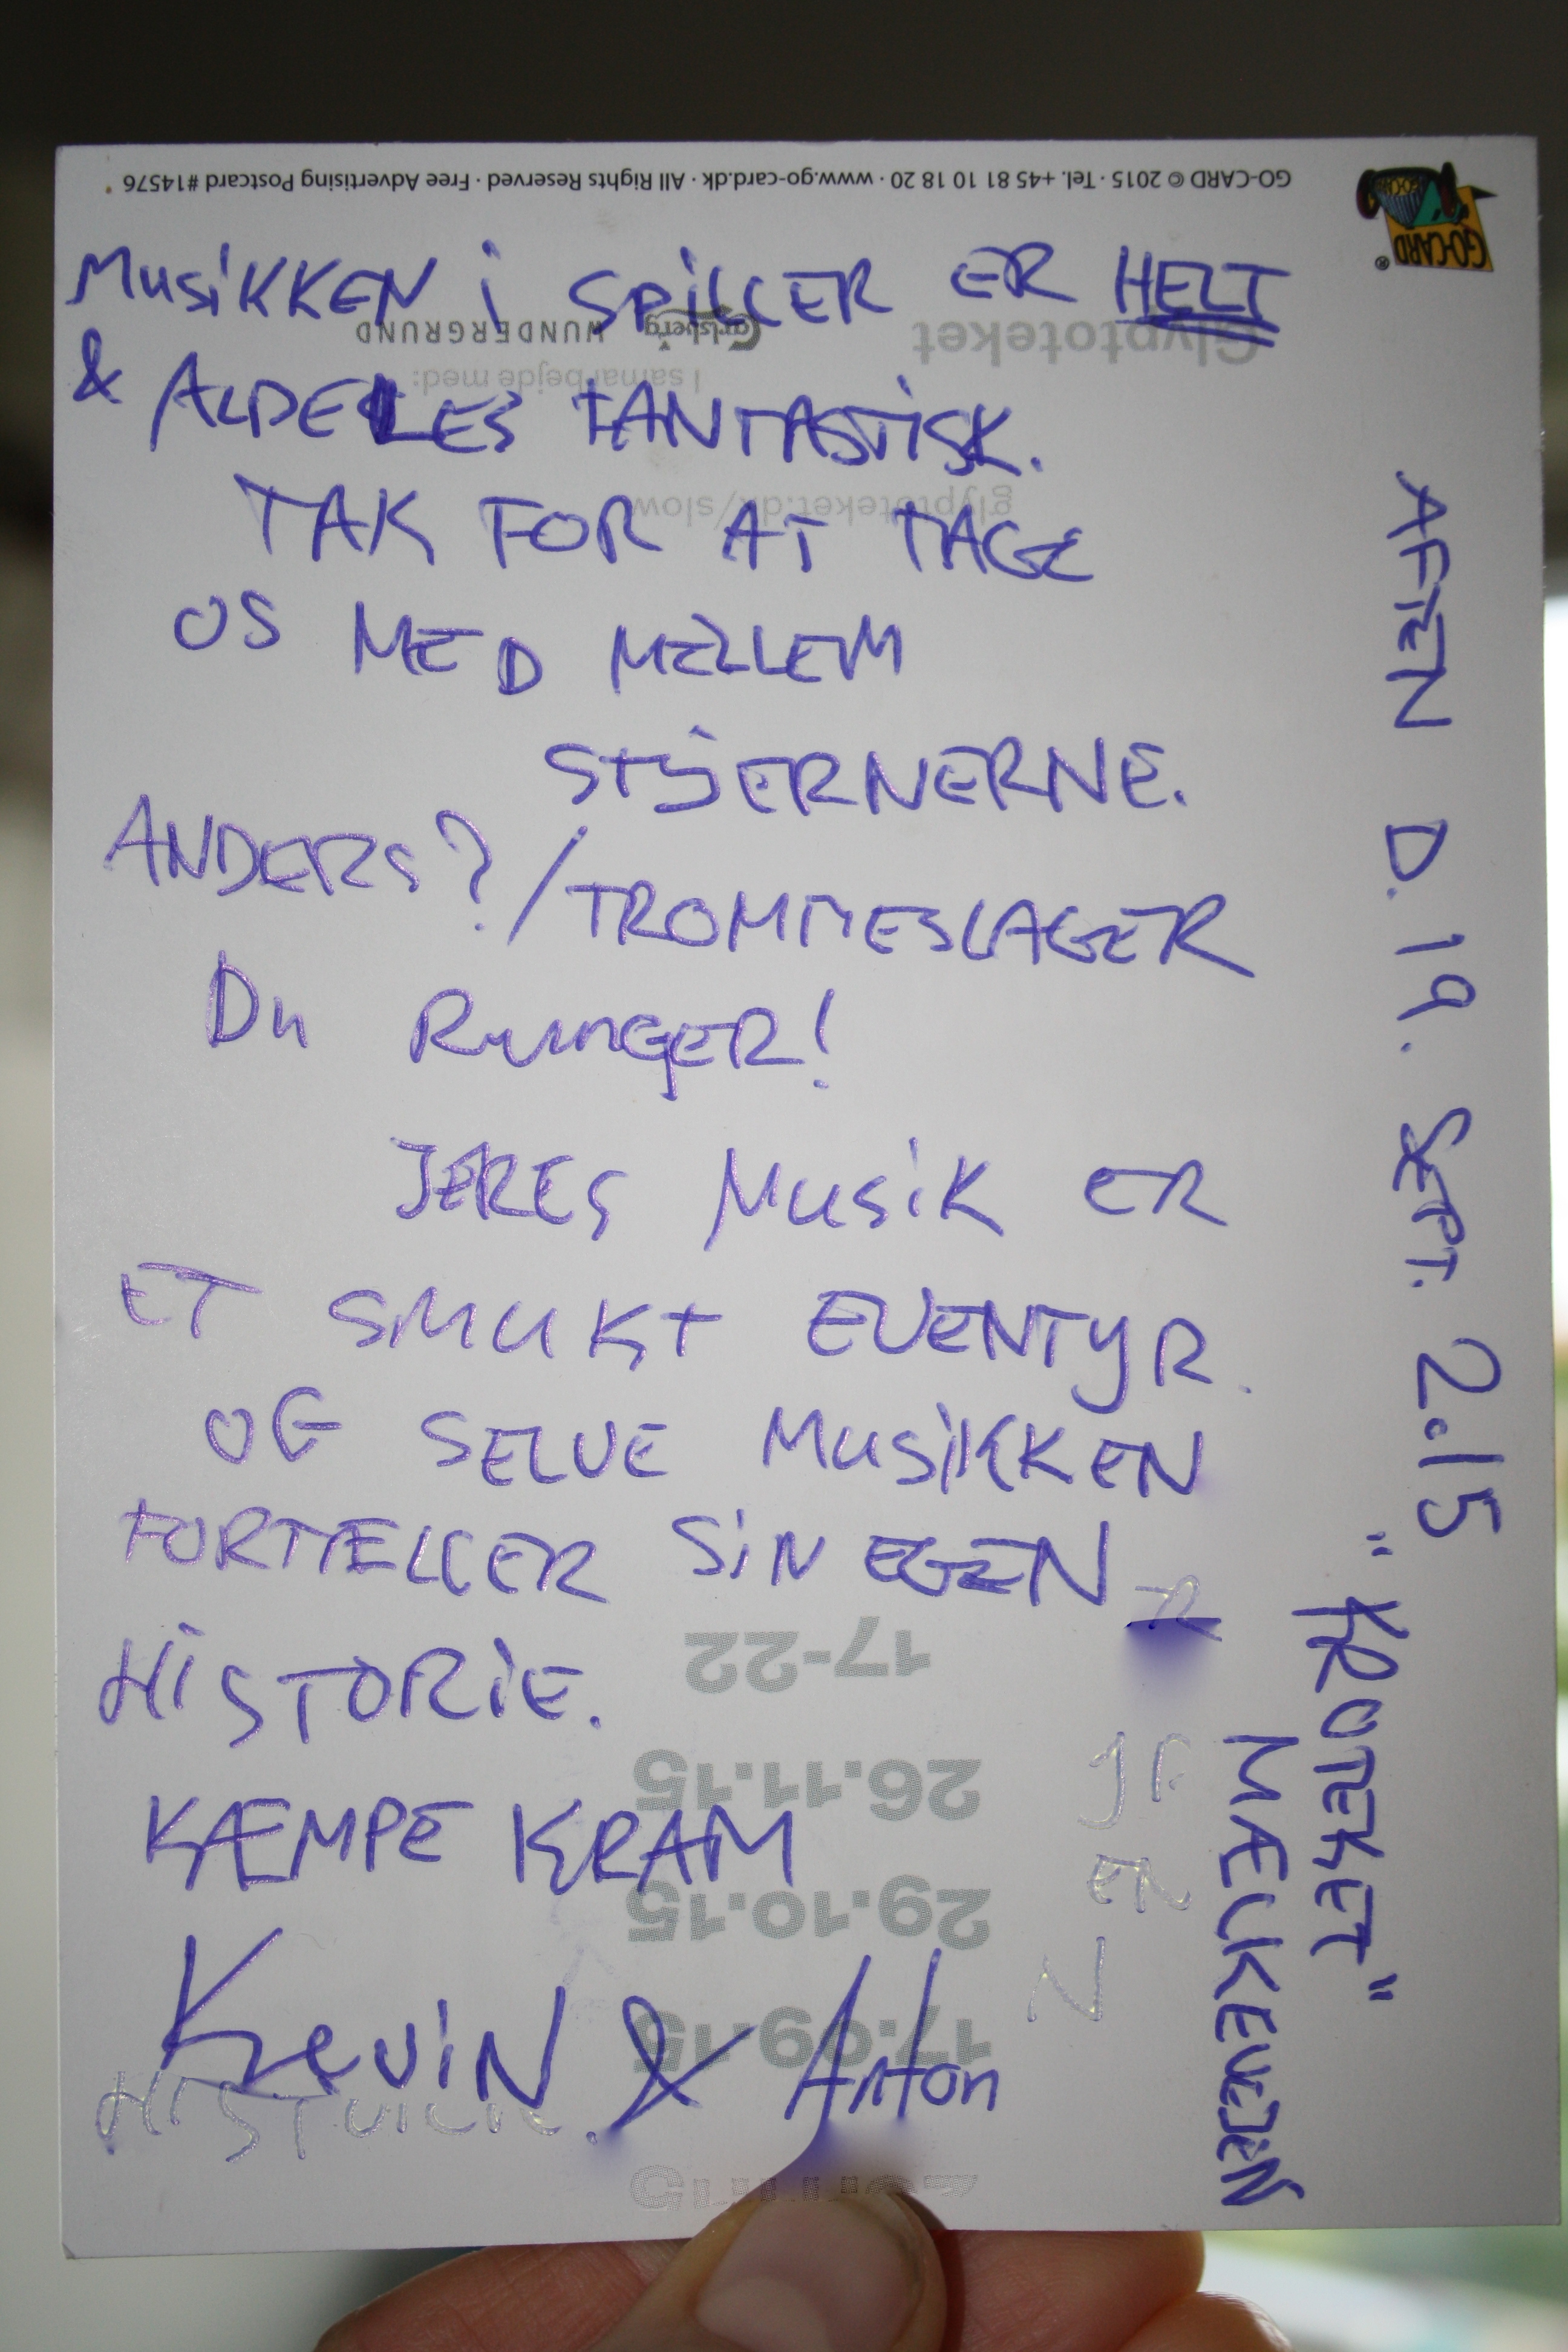 GO-CARD © 2015 · Tel. +45 81 10 18 20 · www.go-card.dk · All Rights Reserved · Free Advertising Postcard #14576
GO-CARD®
MUSIKKEN i SPILLER ER HELT
& ALDELES FANTASTISK.
TAK FOR AT TAGE
OS MED MELLEM
STJERNERNE.
ANDERS? / TROMMESLAGER
DU RUNGER!
JERES MUSIK ER
ET SMUKT EVENTYR.
OG SELVE MUSIKKEN
FORTÆLLER SIN EGEN
HISTORIE.
KÆMPE KRAM
KEVIN & Anton
AFTEN D. 19. SEPT. 2.15
"KROTEKET"
MÆLKEVEJEN
Glyptoteket
Carlsberg WUNDERGRUND
I samarbejde med:
glyptoteket.dk/slow
17-22
26.11.15
29.10.15
17.09.15